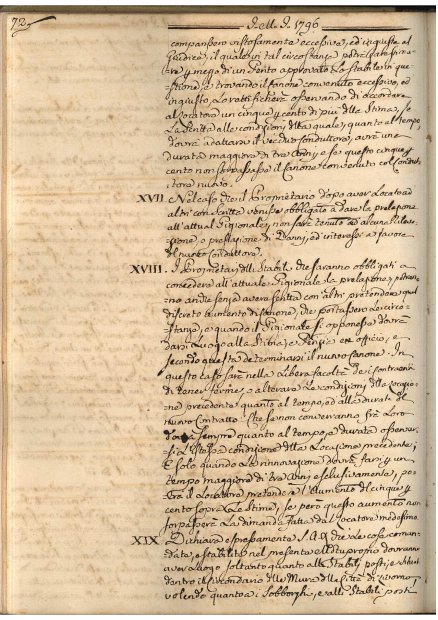 72
J. M. J. 1796
comparissero vistosamente eccessive, ed ingiuste al
Giudice, il quale in tal circostanza potrà far stima-
re per mezzo di un Perito approvato lo stabile in que-
stione, e trovando il Canone convenuto eccessivo, ed
ingiusto, lo rettificherà osservando di accordare
al Locatore un cinque per cento di più della Stima, se
la Verità alle condizioni, della quale, quanto al tempo,
dovrà adattarsi il vecchio Conduttore, avrà una
durata maggiore di tre Anni, e se questo cinque per
cento non sorpassasse il Canone convenuto col Condut-
tore nuovo.
XVII. Nel caso che il Proprietario dopo aver Locato ad
altri con scritta venisse obbligato a dare la prelazione
all'attual Pigionale, non sarà tenuto ad alcuna
zione, o prestazione di Danni, ed interessi a favore
del nuovo Conduttore.
XVIII. I Proprietari delli Stabili, che saranno obbligati a
concedere all'attuale Pigionale la prelazione, potran-
no anche senza aver scritta con altri pretendere quel
discreto aumento di Canone, che portassero le circo-
stanze, e quando il Pigionale si opponesse dovrà
darsi luogo alla Stima, e Perizia ex officio, e
secondo questa determinarsi il nuovo Canone. In
questo caso sarà nella libera facoltà dei Contraenti
di tener ferme, o alterare le condizioni della Locazio-
ne precedente quanto al tempo, ed alla durata del
nuovo Contratto. Che se non converranno frà loro
dovrà sempre quanto al tempo, e durata osservar-
si l'istessa condizione della Locazione precedente;
E solo quando la rinnovazione dovrà farsi per un
tempo maggiore di tre Anni esclusivamente, po-
trà il Locatore pretendere l'Aumento del cinque per
cento sopra la Stima, se però questo aumento non
sorpasserà la dimanda fatta dal Locatore medesimo.
XIX. Dichiara espressamente S. A. R. che le cose coman-
date, e stabilite nel presente Motuproprio dovranno
aver luogo soltanto quanto alli Stabili posti, e situati
dentro il circondario delle Mura della Città di Livorno,
volendo quanto a i Sobborghi, e alli Stabili posti